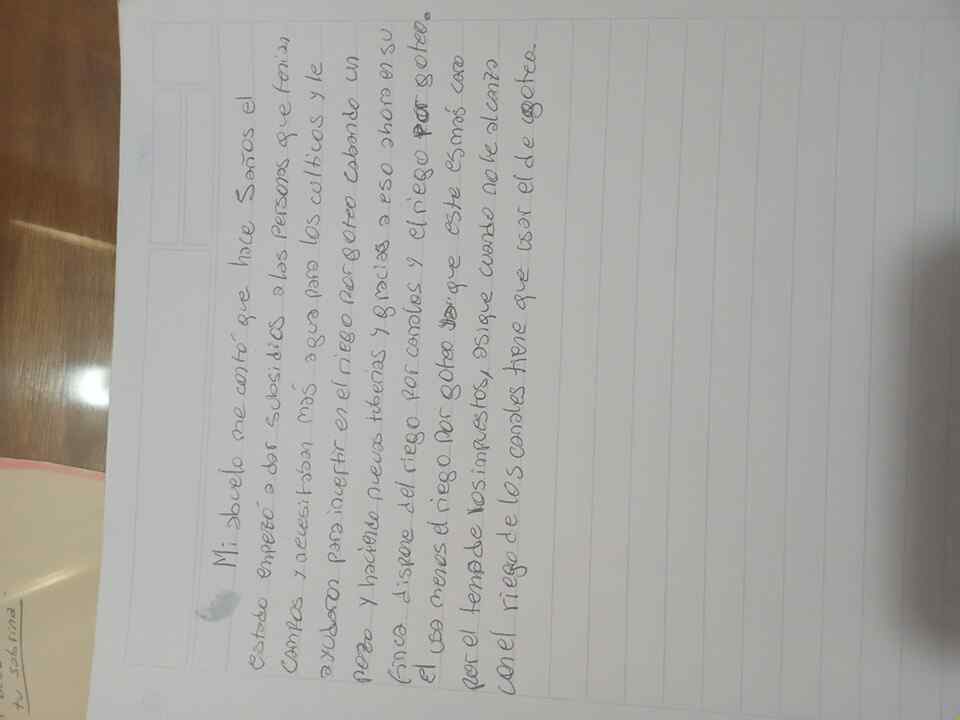 Mi abuelo me contó que hace 5 años el
estado empezó a dar subsidios a las personas que tenian
campos y necesitaban más agua para los cultivos y le
ayudaron para invertir en el riego por goteo cabando un
pozo y haciendo nuevas tuberías y gracias a eso ahora en su
finca dispone del riego por canales y el riego por goteo.
el usa menos el riego por goteo porque este es más caro
por el tema de los impuestos, asique cuando no le alcanza
con el riego de los canales tiene que usar el de gotea
tu sobrina.